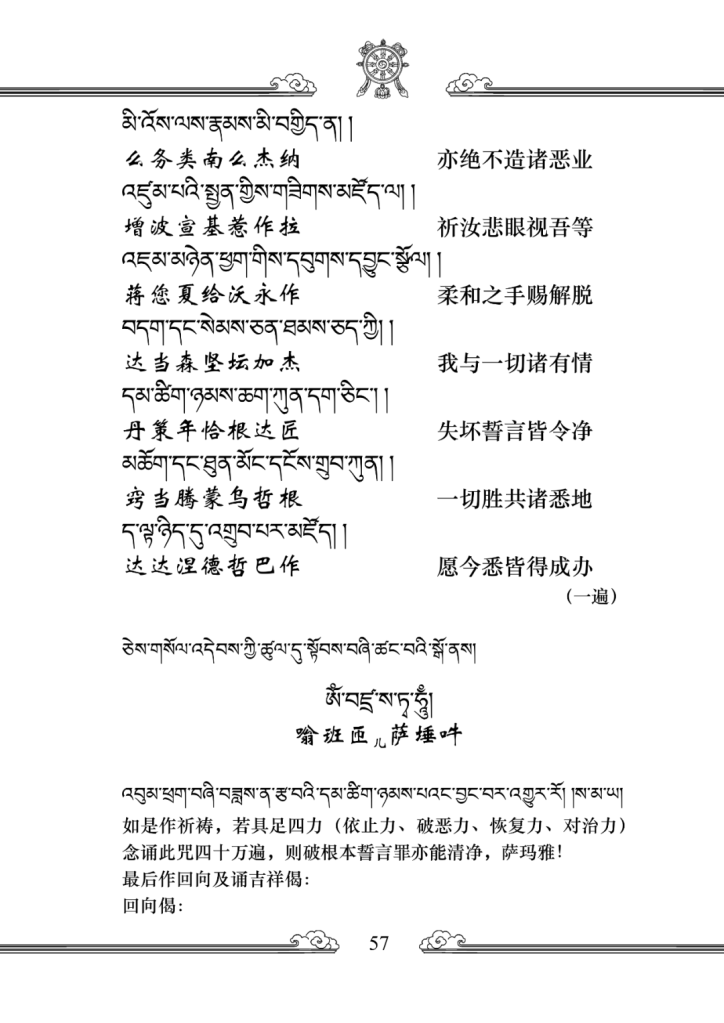 མི་འོས་ལས་རྣམས་མི་བགྱིད་ན། །
么务类南么杰纳 亦绝不造诸恶业
འཛུམ་པའི་སྤྱན་གྱིས་གཟིགས་མཛོད་ལ། །
增波宣基惹作拉 祈汝悲眼视吾等
འཇམ་མཉེན་ཕྱག་གིས་དབུགས་དབྱུང་སྩོལ། །
蒋您夏给沃永作 柔和之手赐解脱
བདག་དང་སེམས་ཅན་ཐམས་ཅད་ཀྱི། །
达当森坚坛加杰 我与一切诸有情
དམ་ཚིག་ཉམས་ཆག་ཀུན་དག་ཅིང་། །
丹策年恰根达匠 失坏誓言皆令净
མཆོག་དང་ཐུན་མོང་དངོས་གྲུབ་ཀུན། །
窍当腾蒙乌哲根 一切胜共诸悉地
ད་ལྟ་ཉིད་དུ་འགྲུབ་པར་མཛོད། །
达达涅德哲巴作 愿今悉皆得成办
（一遍）
ཅེས་གསོལ་འདེབས་ཀྱི་ཚུལ་དུ་སྟོབས་བཞི་ཚང་བའི་སྒོ་ནས།
ཨོཾ་བཛྲ་ས་ཏྭ་ཧཱུྃ།
嗡班匝儿萨埵吽
འབུམ་ཕྲག་བཞི་བཟླས་ན་རྩ་བའི་དམ་ཚིག་ཉམས་པའང་བྱང་བར་འགྱུར་རོ། །ས་མ་ཡ།
如是作祈祷，若具足四力（依止力、破恶力、恢复力、对治力）
念诵此咒四十万遍，则破根本誓言罪亦能清净，萨玛雅！
最后作回向及诵吉祥偈：
回向偈：
57